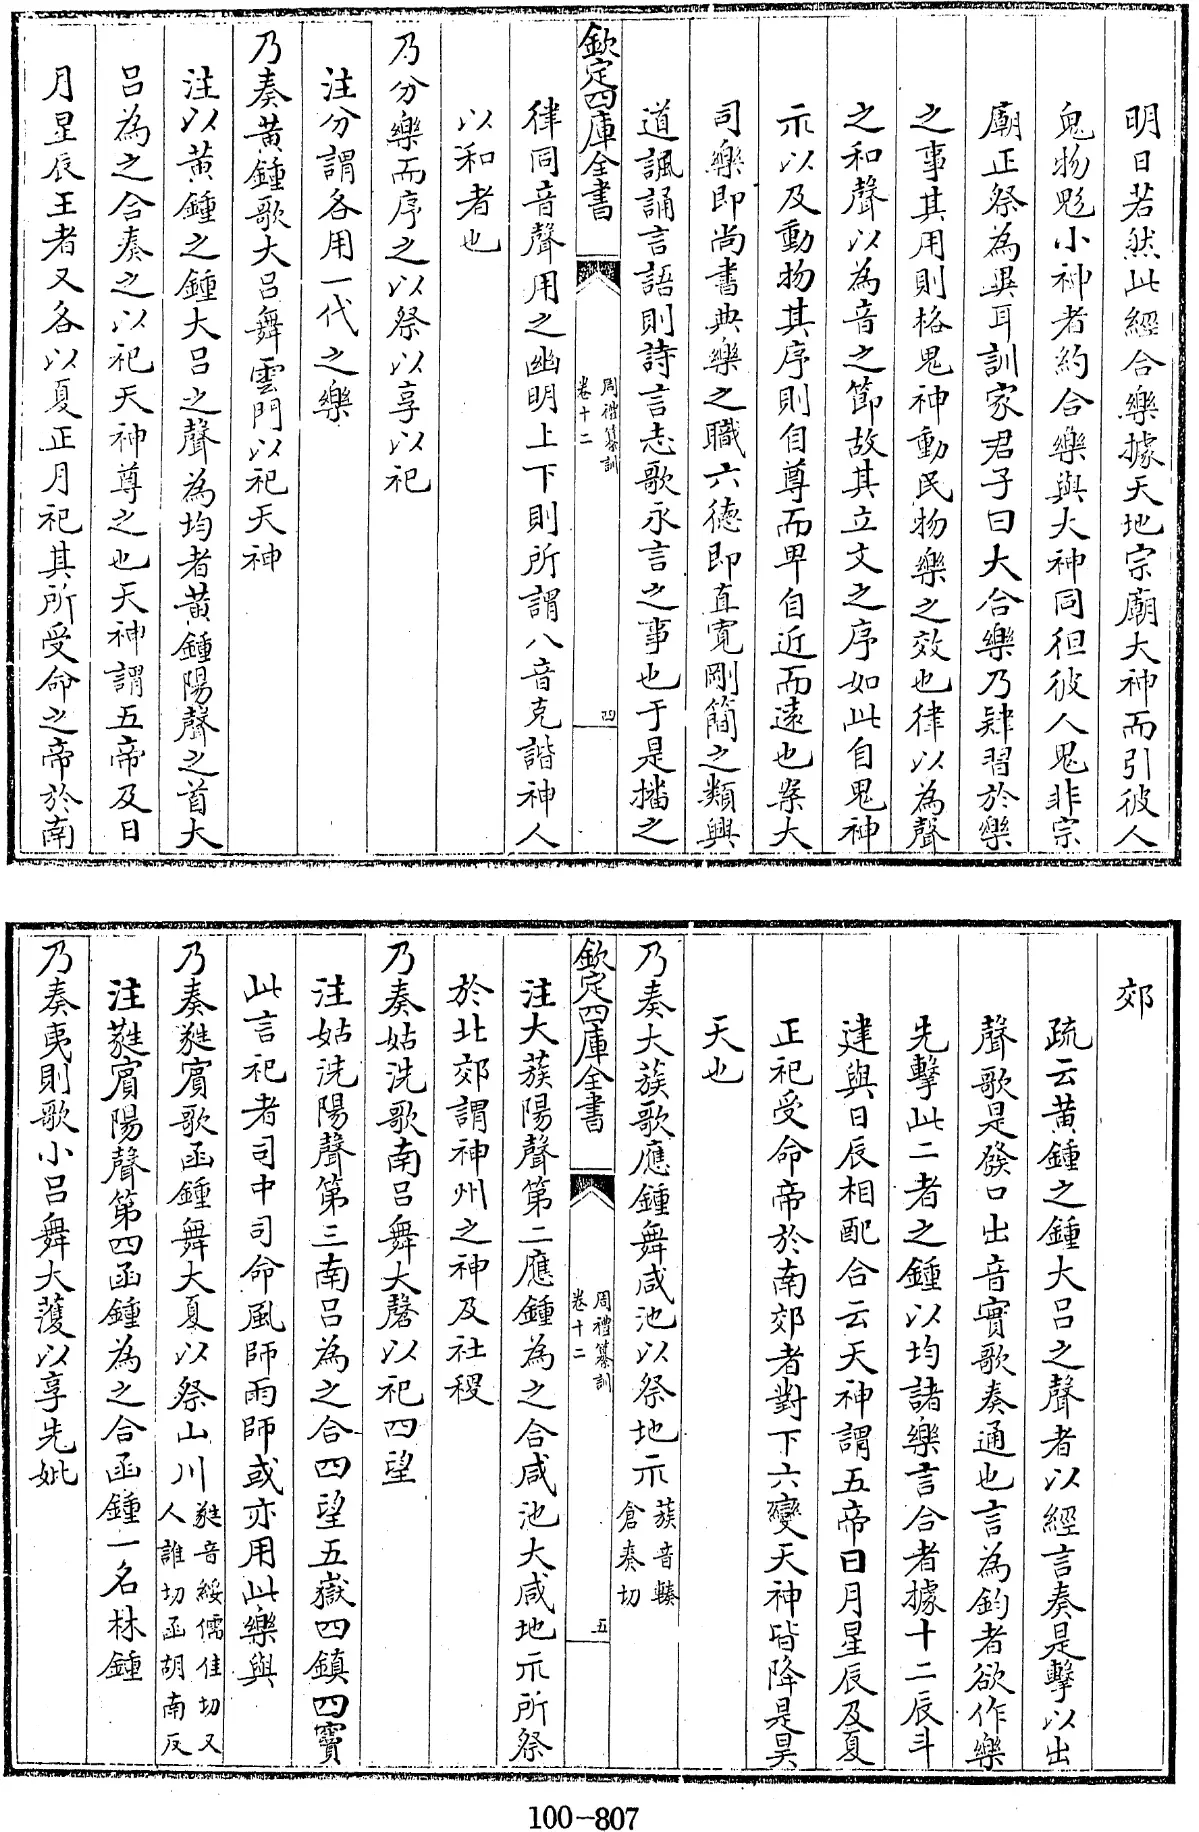 明日若然此經合樂據天地宗廟大神而引彼人
鬼物鬽小神者約合樂與大神同但彼人鬼非宗
廟正祭為異耳訓家君子曰大合樂乃肄習於樂
之事其用則格鬼神動民物樂之效也律以為聲
之和聲以為音之節故其立文之序如此自鬼神
示以及動物其序則自尊而卑自近而遠也案大
司樂即尚書典樂之職六徳即直寛剛簡之類興
道諷誦言語則詩言志歌永言之事也于是播之
欽定四庫全書
周禮纂訓
卷十二
四
律同音聲用之幽明上下則所謂八音克諧神人
以和者也
乃分樂而序之以祭以享以祀
注分謂各用一代之樂
乃奏黄鍾歌大吕舞雲門以祀天神
注以黄鍾之鍾大吕之聲為均者黄鍾陽聲之首大
吕為之合奏之以祀天神尊之也天神謂五帝及日
月星辰王者又各以夏正月祀其所受命之帝於南
郊
疏云黄鍾之鍾大吕之聲者以經言奏是擊以出
聲歌是發口出音實歌奏通也言為鈞者欲作樂
先擊此二者之鍾以均諸樂言合者據十二辰斗
建與日辰相配合云天神謂五帝日月星辰及夏
正祀受命帝於南郊者對下六變天神皆降是昊
天也
乃奏大蔟歌應鍾舞咸池以祭地示蔟音輳
倉奏切
欽定四庫全書
周禮纂訓
卷十二
五
注大蔟陽聲第二應鍾為之合咸池大咸地示所祭
於北郊謂神州之神及社稷
乃奏姑洗歌南吕舞大磬以祀四望
注姑洗陽聲第三南吕為之合四望五嶽四鎮四竇
此言祀者司中司命風師雨師或亦用此樂與
乃奏蕤賓歌函鍾舞大夏以祭山川蕤音綏儒佳切又
人誰切函胡南反
注蕤賓陽聲第四函鍾為之合函鍾一名林鍾
乃奏夷則歌小吕舞大濩以享先妣
100-807